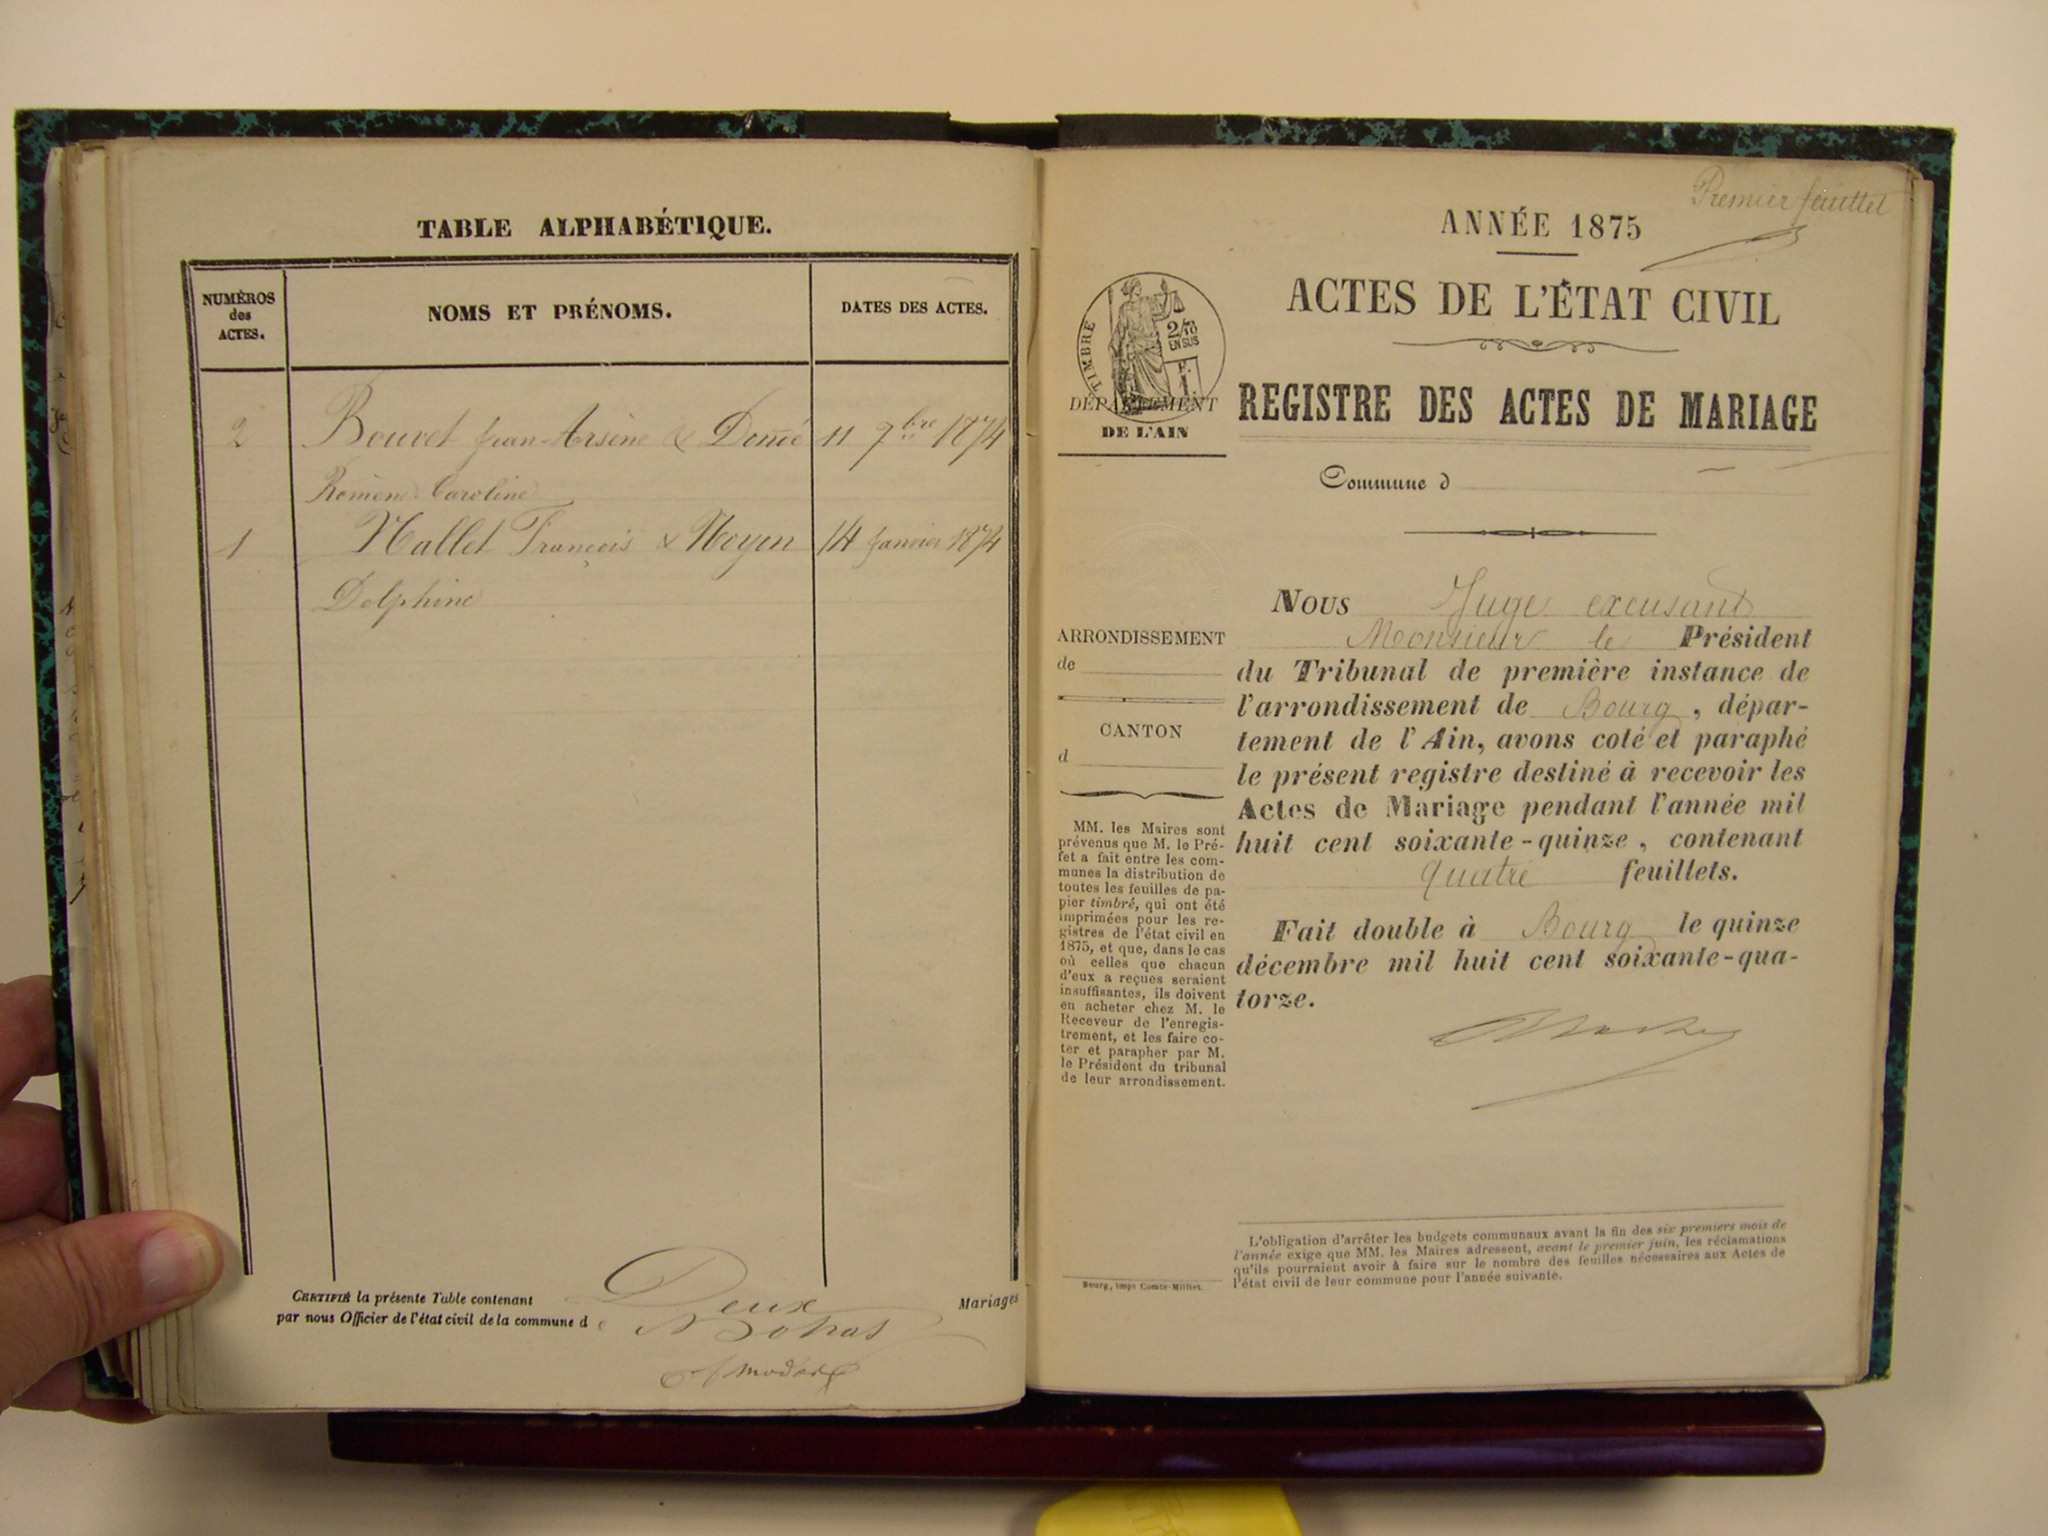 TABLE ALPHABÉTIQUE.
NUMÉROS
des
ACTES.
NOMS ET PRÉNOMS.
DATES DES ACTES.
2 Bouvet Jean-Arsène & 11 7bre 1874
Caroline
1 Mallet François & Moyen 14 Janvier 1874
Delphine
CERTIFIÉ la présente Table contenant Deux Mariages
par nous Officier de l'état civil de la commune d
Premier feuillet
ANNÉE 1875
ACTES DE L'ÉTAT CIVIL
TIMBRE
2/10
EN SUS
DÉPARTEMENT
DE L'AIN
REGISTRE DES ACTES DE MARIAGE
Commune d
ARRONDISSEMENT
de
CANTON
d
MM. les Maires sont
prévenus que M. le Pré-
fet a fait entre les com-
munes la distribution de
toutes les feuilles de pa-
pier timbré, qui ont été
imprimées pour les re-
gistres de l'état civil en
1875, et que, dans le cas
où celles que chacun
d'eux a reçues seraient
insuffisantes, ils doivent
en acheter chez M. le
Receveur de l'enregis-
trement, et les faire co-
ter et parapher par M.
le Président du tribunal
de leur arrondissement.
Bourg, impr Comte-Milliet.
NOUS Juge excusant
Monsieur le Président
du Tribunal de première instance de
l'arrondissement de Bourg, dépar-
tement de l'Ain, avons coté et paraphé
le présent registre destiné à recevoir les
Actes de Mariage pendant l'année mil
huit cent soixante-quinze, contenant
quatre feuillets.
Fait double à Bourg le quinze
décembre mil huit cent soixante-qua-
torze.
L'obligation d'arrêter les budgets communaux avant la fin des six premiers mois de
l'année exige que MM. les Maires adressent, avant le premier juin, les réclamations
qu'ils pourraient avoir à faire sur le nombre des feuilles nécessaires aux Actes de
l'état civil de leur commune pour l'année suivante.